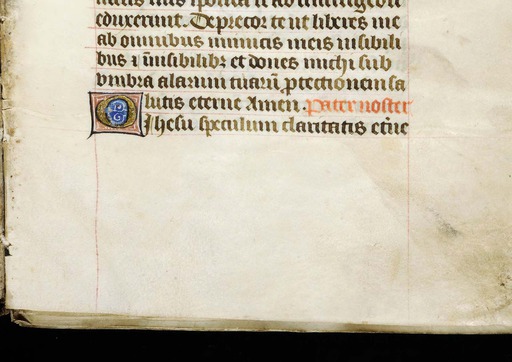 eduxerunt. Deprecor te ut liberes me
ab omnibus inimicis meis visibili
bus ⁊ ĩvisibilibꝫ et dones michi sub
vmbra alarum tuarũ ꝓtectionem sa
lutis eterne Amen. Pater noster
O Jhesu speculum claritatis et̾ne